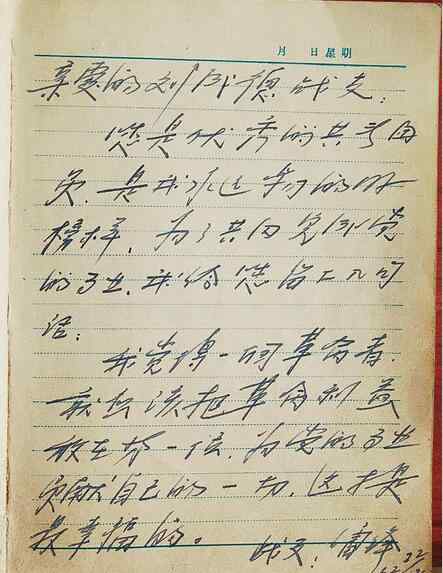 月 日 星期
亲爱的刘成德战友：
您是优秀的共青团
员，是我永远学习的好
榜样，为了共同完成党
的事业，我给您留上几句
话：
我觉得一个革命者，
就应该把革命利益
放在第一位，为党的事业
贡献自己的一切，这才是
最幸福的。
战友：雷锋